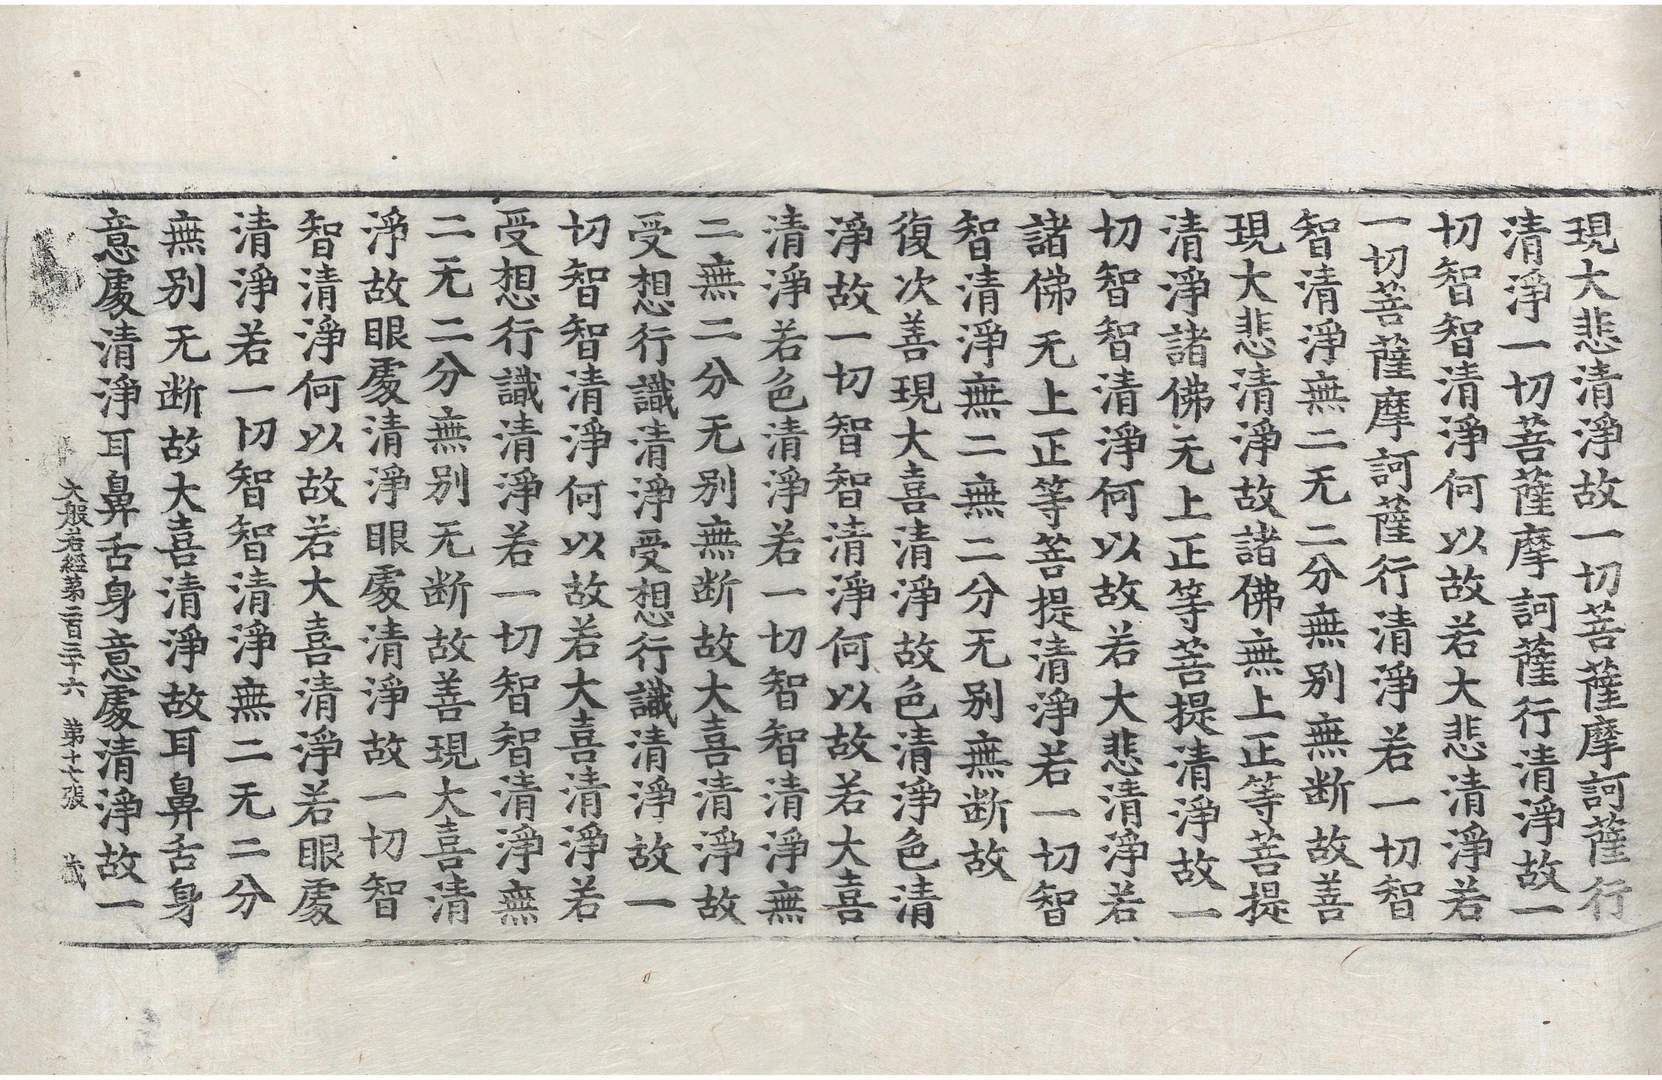 現大悲清淨故一切菩薩摩訶薩行
清淨一切菩薩摩訶薩行清淨故一
切智智清淨何以故若大悲清淨若
一切菩薩摩訶薩行清淨若一切智
智清淨無二无二分無別無断故善
現大悲清淨故諸佛無上正等菩提
清淨諸佛无上正等菩提清淨故一
切智智清淨何以故若大悲清淨若
諸佛无上正等菩提清淨若一切智
智清淨無二無二分无別無断故
復次善現大喜清淨故色清淨色清
淨故一切智智清淨何以故若大喜
清淨若色清淨若一切智智清淨無
二無二分无別無断故大喜清淨故
受想行識清淨受想行識清淨故一
切智智清淨何以故若大喜清淨若
受想行識清淨若一切智智清淨無
二无二分無別无断故善現大喜清
淨故眼處清淨眼處清淨故一切智
智清淨何以故若大喜清淨若眼處
清淨若一切智智清淨無二无二分
無別无断故大喜清淨故耳鼻舌身
意處清淨耳鼻舌身意處清淨故一
大般若經第二百三十六 第十七張